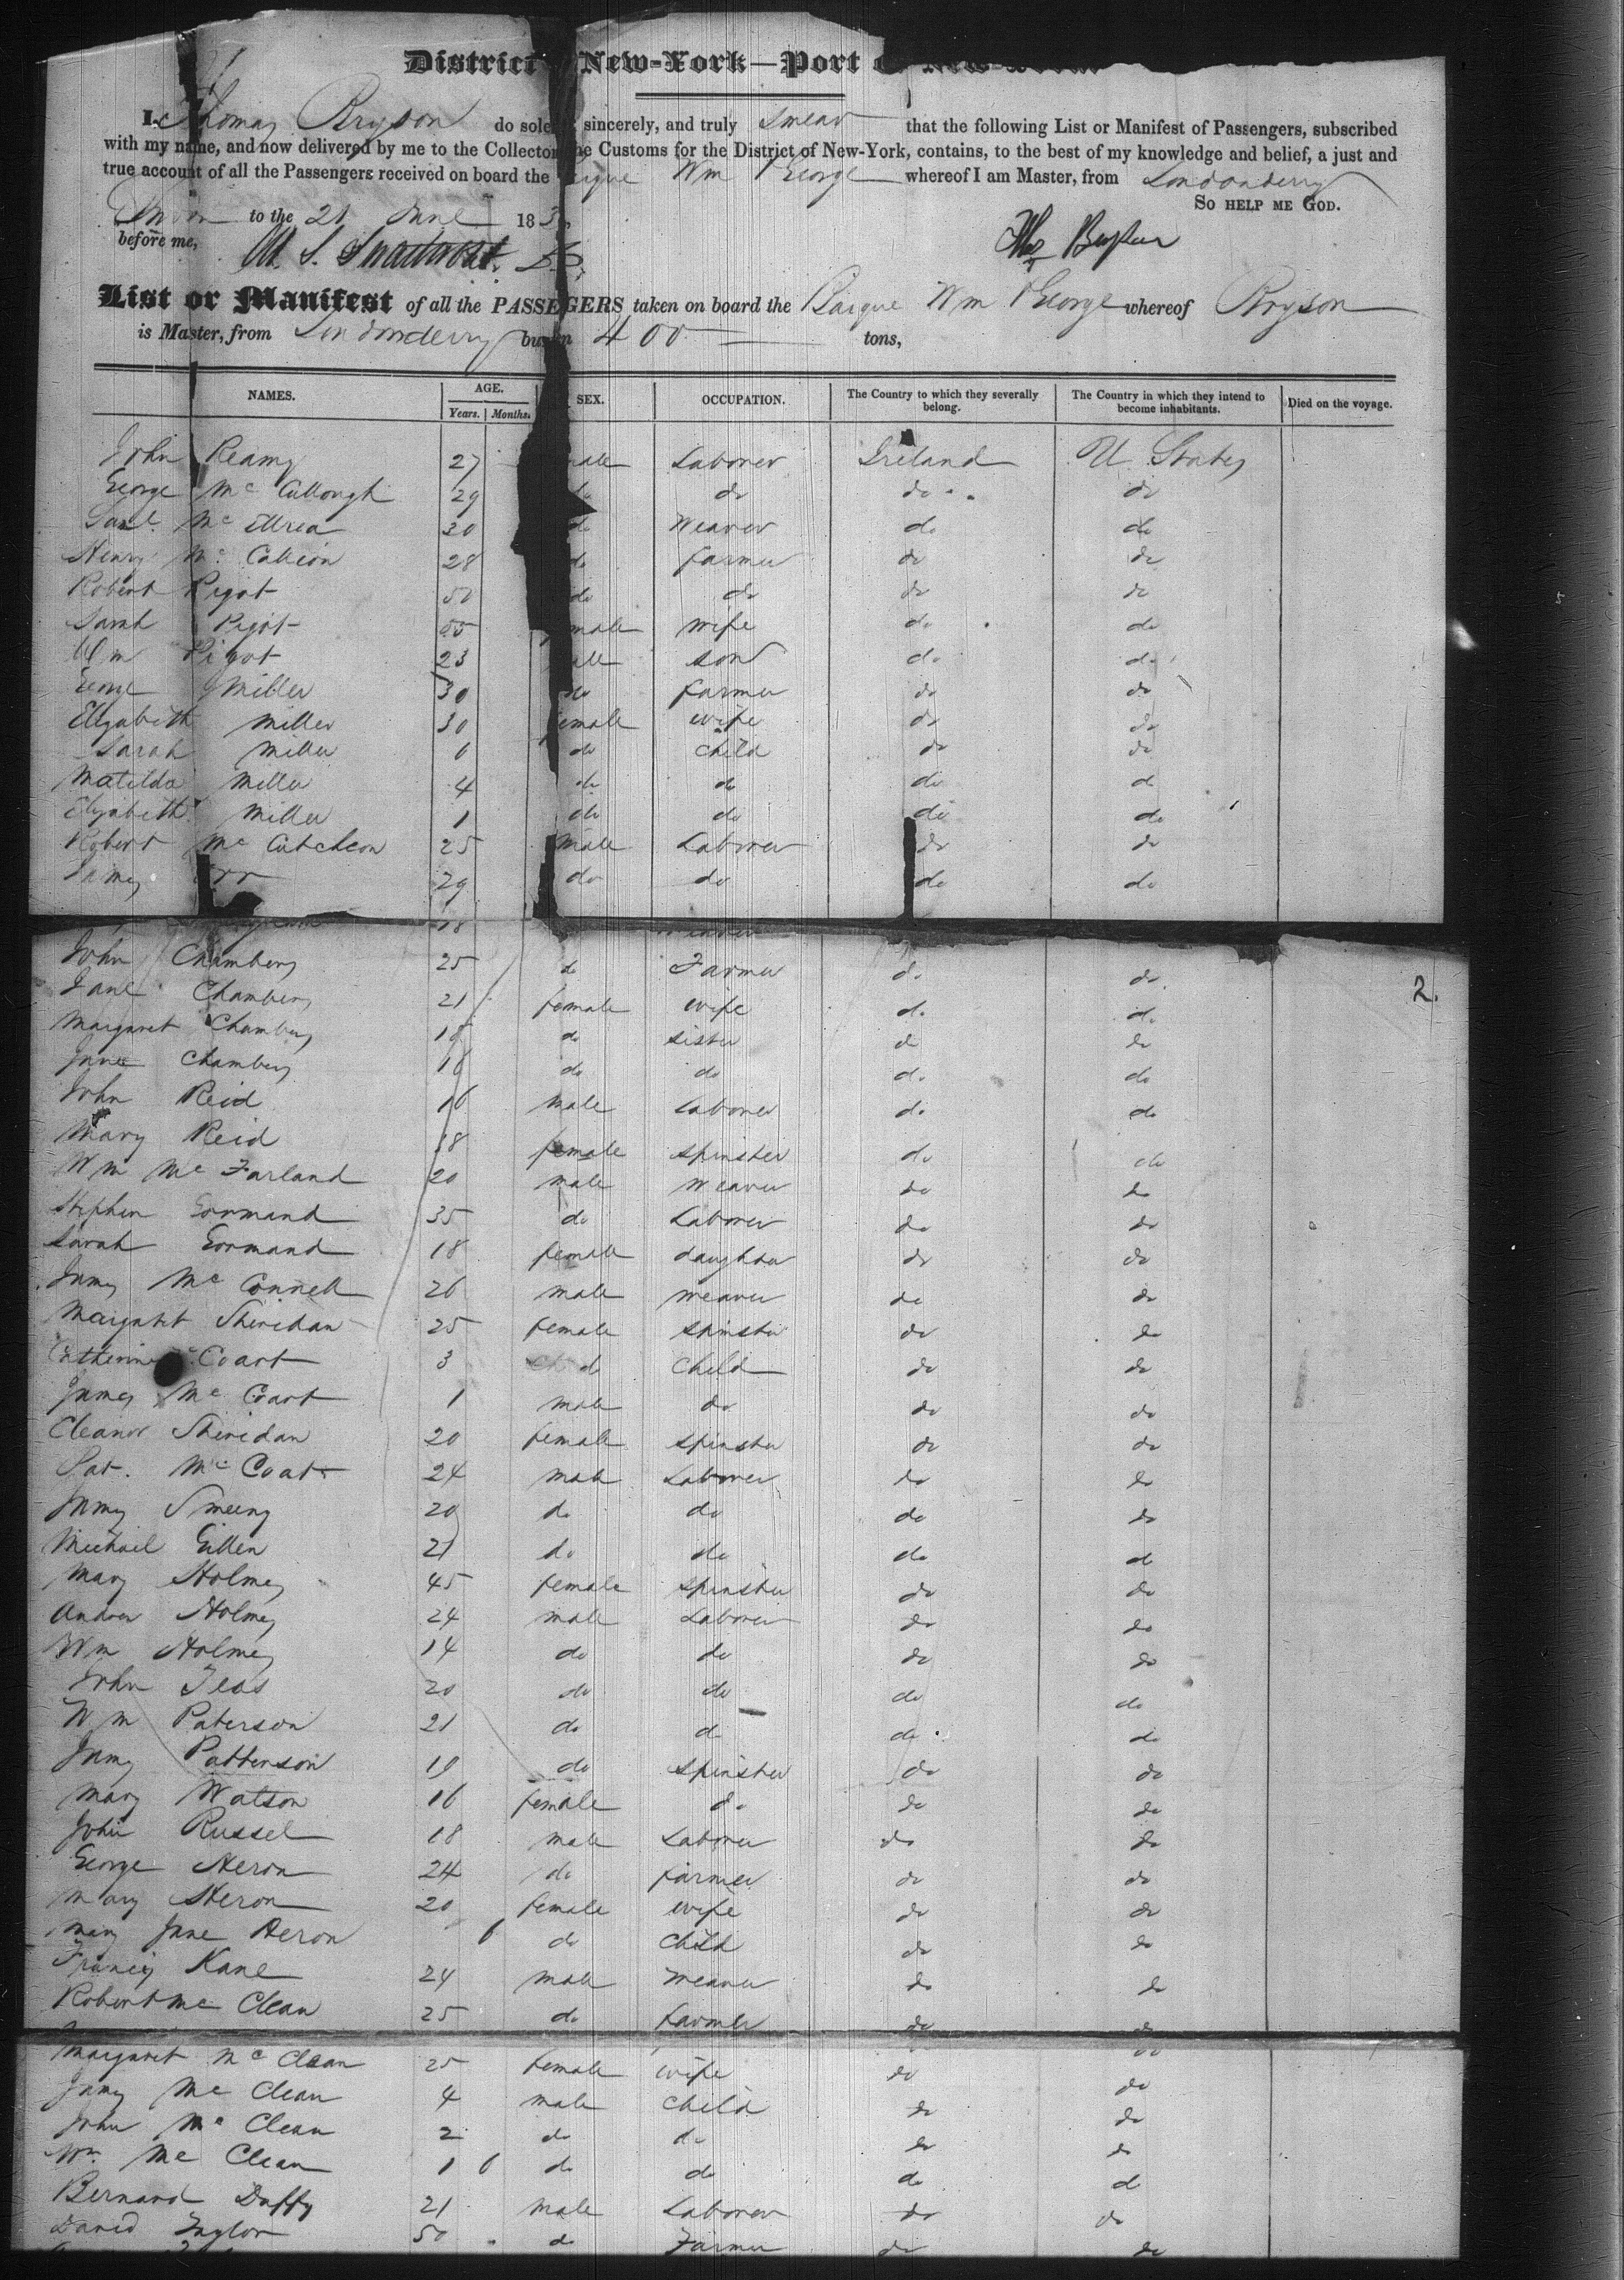 District New-York—Port
I, Thomas Bryson do sole sincerely, and truly Swear that the following List or Manifest of Passengers, subscribed
with my name, and now delivered by me to the Collector he Customs for the District of New-York, contains, to the best of my knowledge and belief, a just and
true account of all the Passengers received on board the Wm George whereof I am Master, from Londonderry
Sworn to the 21 June 183 SO HELP ME GOD.
before me,
Thos Bryson
List or Manifest of all the PASSEGERS taken on board the Barque Wm George whereof Bryson
is Master, from Londonderry bu n 400 tons,
NAMES. AGE. SEX. OCCUPATION. The Country to which they severally belong. The Country in which they intend to become inhabitants. Died on the voyage.
Years. Months.
John 27 male Laborer Ireland U States
George Mc Cullough 29 do do do do
Saml. Mc 30 do Weaver do do
Henry Mc 28 do farmer do do
Robert Pigot 50 do do do do
Sarah Pigot 55 male wife do do
Wm Pigot 23 ale son do do
George Miller 30 do farmer do do
Elizabeth Miller 30 female wife do do
Sarah Miller 6 do child do do
Matilda Miller 4 do do do do
Elizabeth Miller 1 do do do do
Robert Mc Cutcheon 25 Male Laborer do do
James rr 29 do do do do
18
John Chambers 25 do Farmer do do
Jane Chambers 21 female wife do do 2.
Margaret Chambers 18 do sister do do
Jane Chambers 16 do do do do
John Reid 16 male Laborer do do
Mary Reid 18 female spinster do do
Wm Mc Farland 20 male Weaver do do
Stephen Gormand 35 do Laborer do do
Sarah Gormand 18 female daughter do do
James Mc Connell 26 male weaver do do
Margaret Sheridan 25 female spinster do do
Catherine Coart 3 do child do do
James Mc Coart 1 male do do do
Eleanor Sheridan 20 female spinster do do
Pat. Mc Coart 24 male Laborer do do
James 20 do do do do
Michael Gillen 21 do do do do
Mary Holmes 45 female spinster do do
Andrew Holmes 24 male Laborer do do
Wm Holmes 14 do do do do
John Teas 20 do do do do
Wm Paterson 21 do do do do
James Patterson 19 do spinster do do
Mary Watson 16 female do do do
John Russel 18 male Laborer do do
George Heron 24 do farmer do do
Mary Heron 20 female wife do do
Mary Jane Heron 6 do child do do
Francis Kane 24 male weaver do do
Robert Mc Clean 25 do farmer do do
Margaret Mc Clean 25 female wife do do
James Mc Clean 4 male child do do
John Mc Clean 2 do do do do
Wm. Mc Clean 1 6 do do do do
Bernard Duffy 21 male Laborer do do
David Taylor 50 do Farmer do do